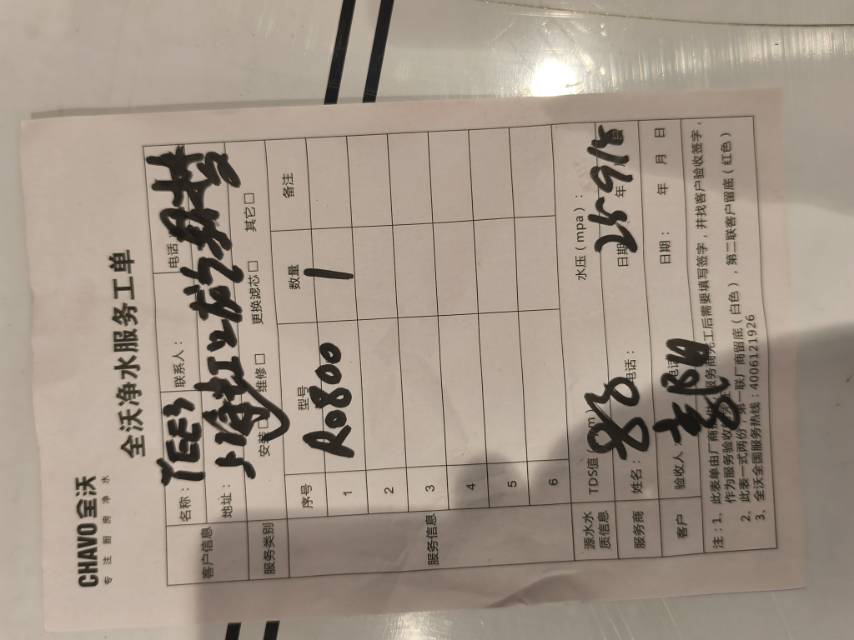 CHAVO 全沃
专注厨房净水
全沃净水服务工单
客户信息 名称： YEES 联系人： 电话
地址： 上海
服务类别 安装□ 维修□ 更换滤芯□ 其它□
服务信息 序号 型号 数量 备注
1 Ro800 1
2
3
4
5
6
源水水质信息 TDS值 水压（mpa）：
服务商 姓名： 电话： 日期 25 9/5 年
客户 验收人 电话 日期： 年 月 日
注：1、此表单由厂商 服务商完工后需要填写签字，并找客户验收签字，
作为服务验收
2、此表一式两份，第一联厂商留底（白色），第二联客户留底（红色）
3、全沃全国服务热线：4006121926